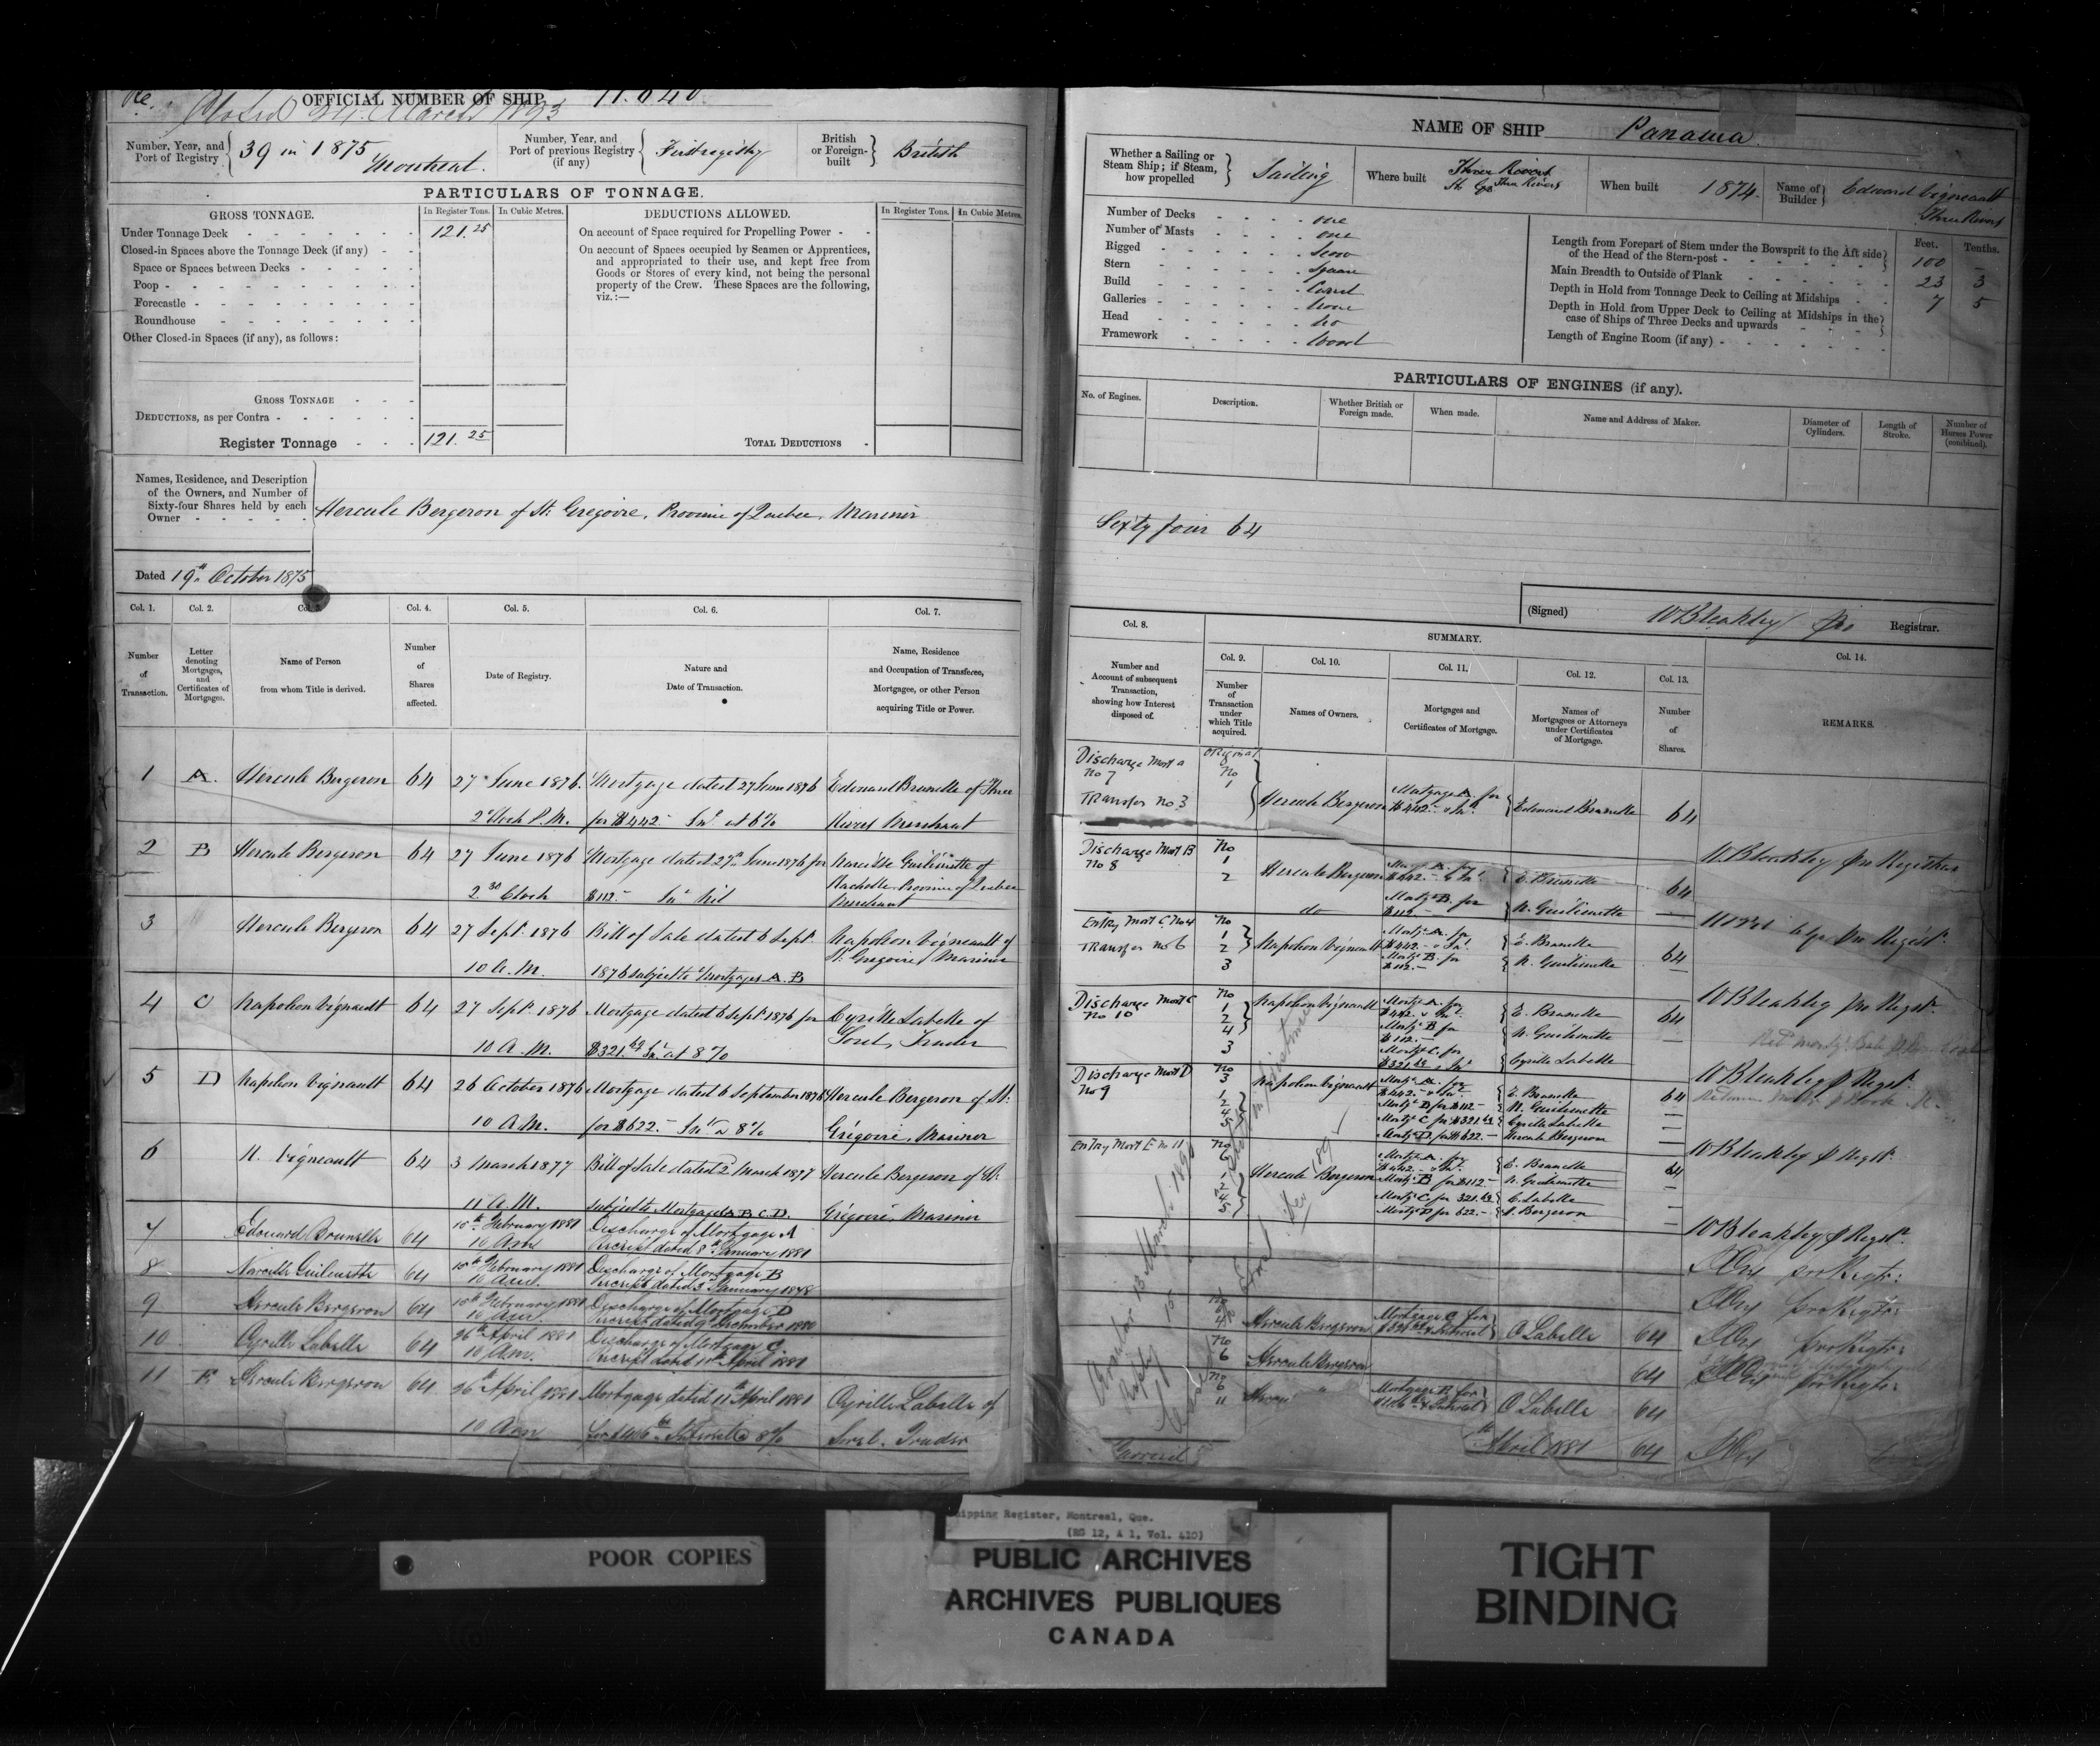 Closed 24. March 1893
OFFICIAL NUMBER OF SHIP
Number, Year, and Port of Registry
39 in 1875 Montreal.
Number, Year, and Port of previous Registry (if any)
First registry
British or Foreign-built
British
PARTICULARS OF TONNAGE.
GROSS TONNAGE.
In Register Tons.
In Cubic Metres.
DEDUCTIONS ALLOWED.
In Register Tons.
In Cubic Metres.
Under Tonnage Deck
121.25
On account of Space required for Propelling Power
Closed-in Spaces above the Tonnage Deck (if any)
On account of Spaces occupied by Seamen or Apprentices,
Space or Spaces between Decks
and appropriated to their use, and kept free from
Poop
Goods or Stores of every kind, not being the personal
Forecastle
property of the Crew. These Spaces are the following,
viz.:—
Roundhouse
Other Closed-in Spaces (if any), as follows:
GROSS TONNAGE
DEDUCTIONS, as per Contra
Register Tonnage
121.25
TOTAL DEDUCTIONS
Names, Residence, and Description
of the Owners, and Number of
Sixty-four Shares held by each
Owner
Hercule Bergeron of St. Gregoire, Province of Quebec, Mariner
Dated 19th October 1875
Col. 1.
Col. 2.
Col. 3.
Col. 4.
Col. 5.
Col. 6.
Col. 7.
Number of Transaction.
Letter denoting Mortgages, and Certificates of Mortgages.
Name of Person from whom Title is derived.
Number of Shares affected.
Date of Registry.
Nature and Date of Transaction.
Name, Residence and Occupation of Transferee, Mortgagee, or other Person acquiring Title or Power.
1 A. Hercule Bergeron 64 27 June 1876. Mortgage dated 27 June 1876 Edouard Brunelle of Three
2 o'Clock P.M. for $442.- Int at 6% Rivers Merchant
2 B Hercule Bergeron 64 27 June 1876 Mortgage dated 27th June 1876 for Narcisse Guilmette of
2.30 Clock $112.- Int Nil Province of Quebec
Merchant
3 Hercule Bergeron 64 27 Sept. 1876 Bill of Sale dated 6 Sept. Napoleon Vigneault of
10 A.M. 1876 subject to Mortgages A. B St. Gregoire, Mariner
4 C Napoleon Vigneault 64 27 Sept. 1876 Mortgage dated 6 Sept. 1876 for Cyrille Labelle of
10 A.M. Int at 8% Sorel, Trader
5 D Napoleon Vigneault 64 26 October 1876 Mortgage dated 6 September 1876 Hercule Bergeron of St.
10 A.M. for $622.- Int a 8% Grégoire, Mariner
6 N. Vigneault 64 3 March 1877 Bill of Sale dated 2 March 1877 Hercule Bergeron of St.
11 A.M. subject to Mortgages A B C D. Grégoire, Mariner
7 Edouard Brunelle 64 10th February 1881 Discharge of Mortgage A
10 Am receipt dated 8th January 1881
8 Narcisse Guilmette 64 10th February 1881 Discharge of Mortgage B
10 Am. receipt dated 3rd January
9 Hercule Bergeron 64 10th February 1881 Discharge of Mortgage D
10 Am. receipt dated 9th December 1880
10 Cyrille Labelle 64 26th April 1881 Discharge of Mortgage C
10 Am. receipt dated 11th April 1881
11 E Hercule Bergeron 64 26th April 1881 Mortgage dated 11th April 1881 Cyrille Labelle of
10 Am Interest @ 8% Sorel. Trader
NAME OF SHIP Panama
Whether a Sailing or Steam Ship; if Steam, how propelled
Sailing
Where built
Three Rivers
When built
1874.
Name of Builder
Edward Vigneault
Three Rivers
Number of Decks one
Number of Masts one
Rigged Scow
Stern Square
Build Carvel
Galleries None
Head No
Framework Wood
Feet. Tenths.
Length from Forepart of Stem under the Bowsprit to the Aft side
of the Head of the Stern-post 100 -
Main Breadth to Outside of Plank 23 3
Depth in Hold from Tonnage Deck to Ceiling at Midships 7 5
Depth in Hold from Upper Deck to Ceiling at Midships in the
case of Ships of Three Decks and upwards
Length of Engine Room (if any)
PARTICULARS OF ENGINES (if any).
No. of Engines.
Description.
Whether British or Foreign made.
When made.
Name and Address of Maker.
Diameter of Cylinders.
Length of Stroke.
Number of Horses Power (combined).
Sixty four 64
(Signed) W Bleakley pro Registrar.
Col. 8.
SUMMARY.
Col. 9.
Col. 10.
Col. 11.
Col. 12.
Col. 13.
Col. 14.
Number and Account of subsequent Transaction, showing how Interest disposed of.
Number of Transaction under which Title acquired.
Names of Owners.
Mortgages and Certificates of Mortgage.
Names of Mortgagees or Attorneys under Certificates of Mortgage.
Number of Shares.
REMARKS.
Discharge Mort a No 7
Transfer No 3
Original No 1
Hercule Bergeron
Mortgage A. for $442.- & Int.
Edouard Brunelle
64
W Bleakley pro Registrar
Discharge Mort B No 8
No 1 2
Hercule Bergeron
Mortg. A. for $442.- & Int.
E. Brunelle
64
do
Mortg. B. for $112.-
N. Guilmette
Entry Mort C. No 4
Transfer No 6
No 1 2 3
Napoleon Vigneault
Mortg. A. for $442.- & Int.
E. Brunelle
64
Mortg. B. for $112.-
N. Guilmette
W Bleakley pro Regist.
Discharge Mort C No 10
No 1 2 4 3
Napoleon Vigneault
Mortg. A. for $442. & Int.
E. Brunelle
64
Mortg. B for $112.-
N. Guilmette
Mortg. C. for
Cyrille Labelle
W Bleakley p Regist.
Discharge Mort D No 9
No 3 1 2 4 5
Napoleon Vigneault
Mortg. A. for $442.- & Int.
E. Brunelle
64
Mortg. B for $112.-
N. Guilmette
Cyrille Labelle
Mortg. D for $622.-
Hercule Bergeron
W Bleakley p Regist.
Entry Mort E No 11
No 6 1 2 4 5
Hercule Bergeron
Mortg. A. for $442.- & Int.
E. Brunelle
64
Mortg. B for $112.-
N. Guilmette
C. Labelle
Mortg. D for 622.-
H. Bergeron
W Bleakley p Regist.
pro Registr:
pro Registr:
Hercule Bergeron
Mortgage C for
C Labelle
64
pro Registr:
No 6
Hercule Bergeron
64
pro Registr:
No 6 11
C Labelle
64
April 1881
64
Shipping Register, Montreal, Que.
(RG 12, A 1, Vol. 410)
POOR COPIES
PUBLIC ARCHIVES
ARCHIVES PUBLIQUES
CANADA
TIGHT
BINDING